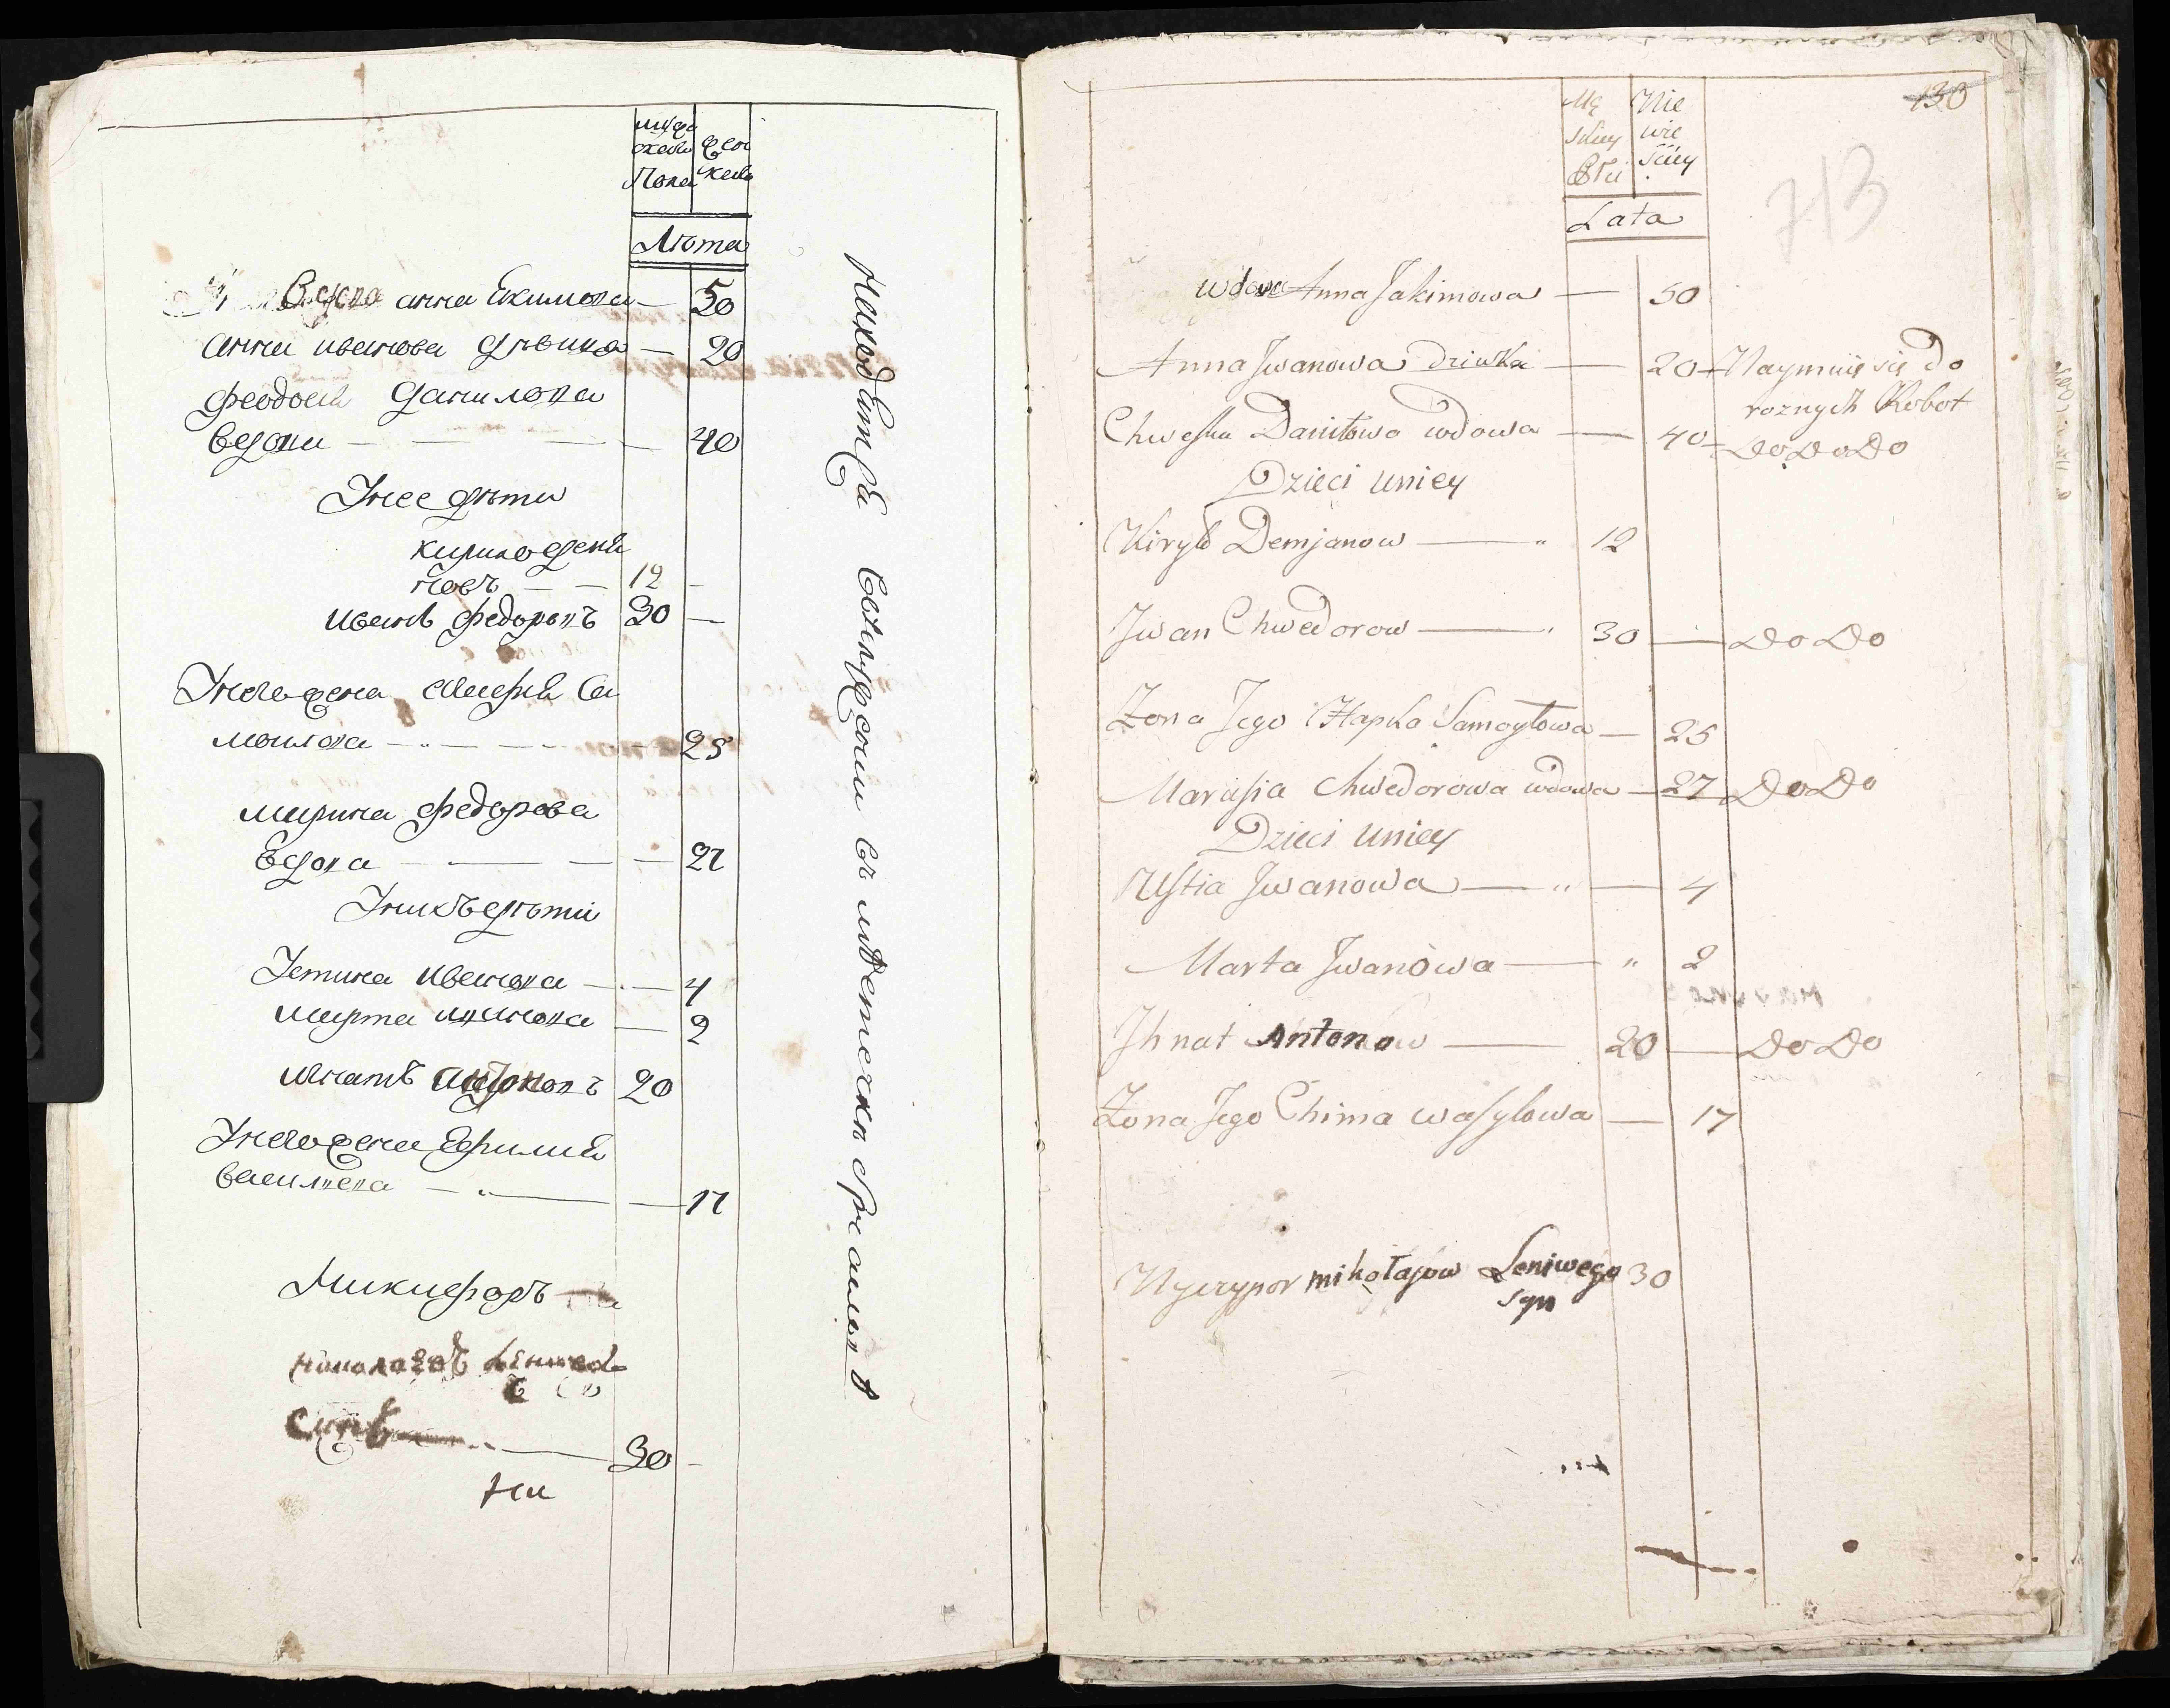 муже
скаго
Пола
жен
скаго
Лѣта
Вдова анна Екимова — 50
анна иванова дѣвка — 20
Феодосія Данилова
вдова — 40
Унее дѣти
кирило демя
новъ — 12 —
иванъ федоровъ 30 —
Унего жена Агафия Са
мойлова — 25
марина федорова
вдова — 27
Унихъ дѣти
Устина иванова — 4
марта иванова — 2
игнатъ антоновъ 20
Унего жена Ефимия
васильева — 17
Никифоръ
николаевъ
синъ — 30
На
Находятся
130
713
Mę
skiey
Płci
Nie
wie
ściey
Lata
wdowa Anna Jakimowa — 50
Anna Jwanowa dziwka — 20 — Naymuię się do
roznych Robot
Chweska Daniłowa wdowa — 40 — Do Do Do
Dzieci uniey
Kiryło Demjanow — " 12
Jwan Chwedorow — " 30 — Do Do
Zona Jego Hapka Samoyłowa — 25
Marusia Chwedorowa wdowa — 27 — Do Do
Dzieci uniey
Ustia Jwanowa — " — 4
Marta Jwanowa — " 2
Jhnat Antonow — 20 — Do Do
Zona Jego Chima wasylowa — 17
Nyczypor mikołajow Leniwego 30
syn